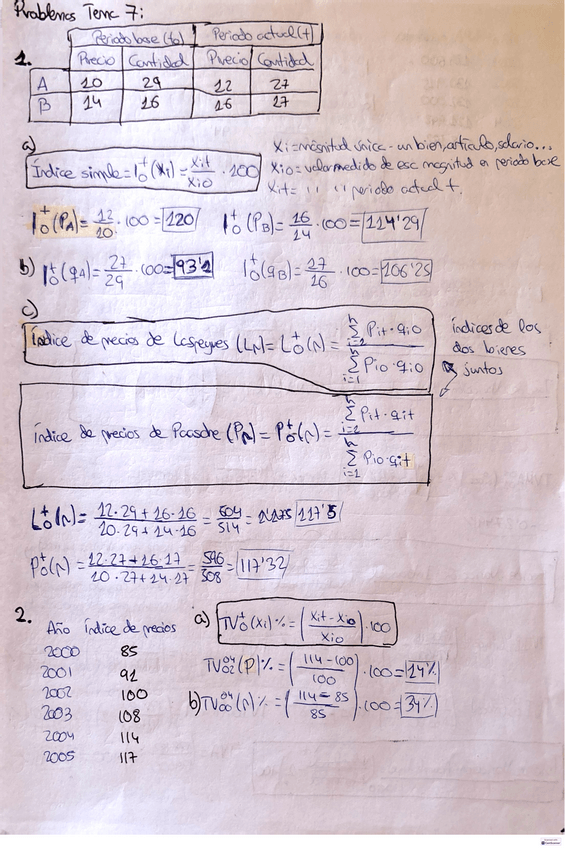 Problemas Tema 7:
1.
Periodo base (t0) Periodo actual (t)
Precio Cantidad Precio Cantidad
A 10 29 12 27
B 14 16 16 17
a)
Índice simple = I₀ᵗ(Xi) = Xit / Xi0 · 100
Xi = magnitud única - un bien, artículo, salario...
Xi0 = valor medido de esc magnitud en periodo base
Xit = " " periodo actual t.
I₀ᵗ(PA) = 12/10 · 100 = 120 I₀ᵗ(PB) = 16/14 · 100 = 114'29
b) I₀ᵗ(qA) = 27/29 · 100 = 93'1 I₀ᵗ(qB) = 17/16 · 100 = 106'25
c)
Índice de precios de Laspeyres (Lp) = L₀ᵗ(p) = Σ Pit · qi0 / Σ Pi0 · qi0
índices de los
dos bienes
juntos
Índice de precios de Paasche (Pp) = P₀ᵗ(p) = Σ Pit · qit / Σ Pi0 · qit
L₀ᵗ(p) = 12·29 + 16·16 / 10·29 + 14·16 = 604/514 = 1'175 117'5
P₀ᵗ(p) = 12·27 + 16·17 / 10·27 + 14·17 = 596/508 = 117'32
2.
Año Índice de precios
2000 85
2001 92
2002 100
2003 108
2004 114
2005 117
a) TV₀ᵗ(Xi)% = (Xit - Xi0 / Xi0) · 100
TV₀₂⁰⁴(P)% = (114 - 100 / 100) · 100 = 14%
b) TV₀₀⁰⁴(p)% = (114 - 85 / 85) · 100 = 34%